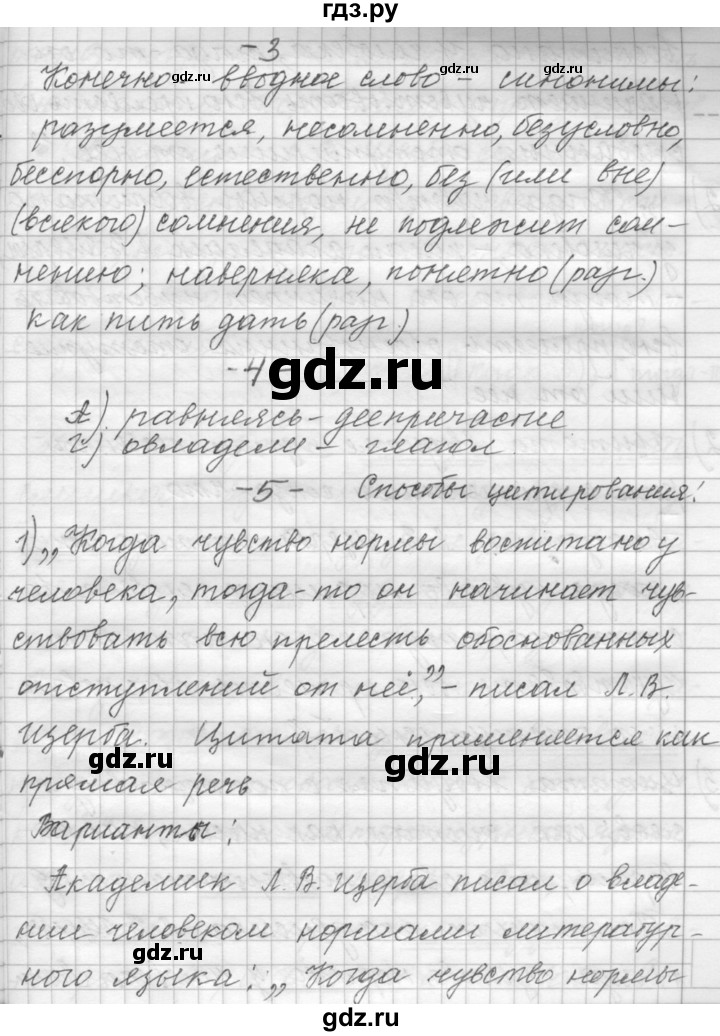 гдз.ру
-3
Конечно- вводное слово - синонимы:
разумеется, несомненно, безусловно,
бесспорно, естественно, без (или вне)
(всякого) сомнения, не подлежит сом-
нению; наверняка, понятно (разг.)
как пить дать (разг.)
gdz.ru
-4-
А). равняясь - деепричастие
г) овладели - глагол
-5- Способы цитирования:
1) „Когда чувство нормы воспитано у
человека, тогда-то он начинает чув-
ствовать всю прелесть обоснованных
отступлений от неё,” - писал Л.В.
Щерба. Цитата применяется как
прямая речь
Варианты:
Академик Л.В. Щерба писал о владе-
нии человеком нормами литератур-
ного языка: „Когда чувство нормы
gdz.ru
gdz.ru
gdz.ru
gdz.ru
gdz.ru
gdz.ru
gdz.ru
gdz.ru
gdz.ru
gdz.ru